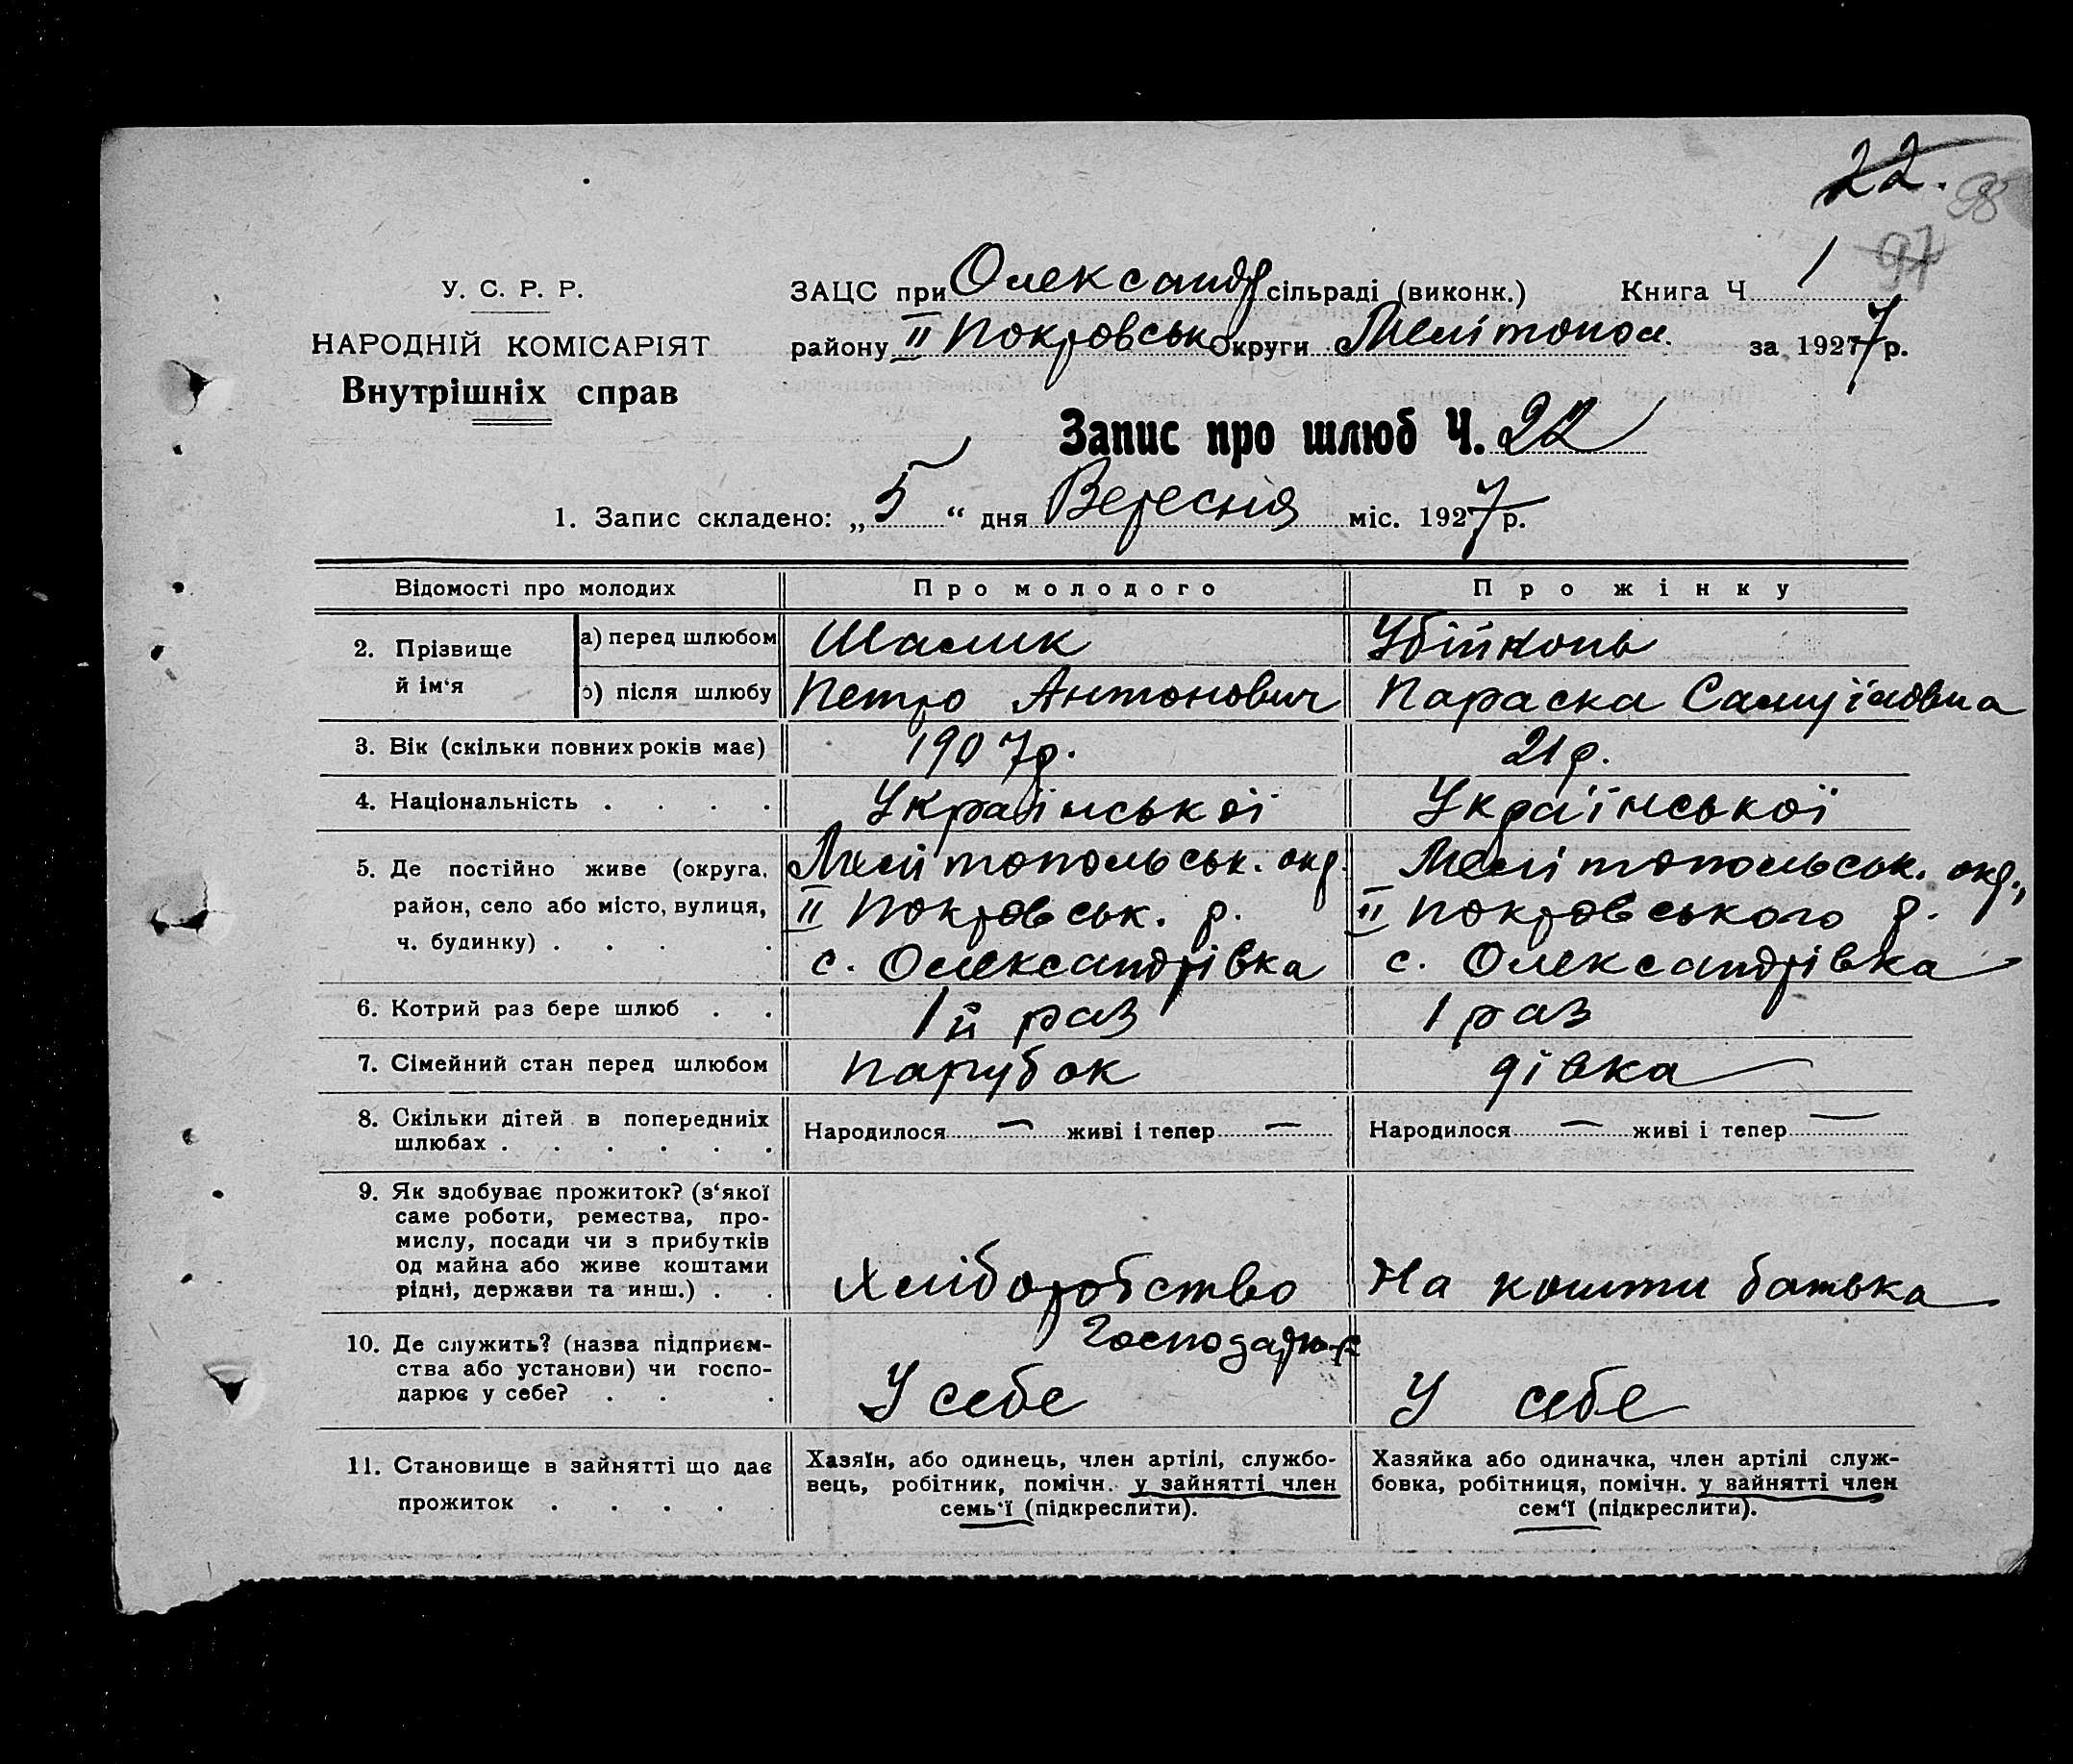 22.
98
97
У. С. Р. Р.
НАРОДНІЙ КОМІСАРІЯТ
Внутрішніх справ
ЗАЦС при Олександр сільраді (виконк.) Книга Ч 1
району II Покровськ округи Мелітопол. за 1927 р.
Запис про шлюб Ч. 22
1. Запис складено: „5“ дня Вересня міс. 1927 р.
Відомості про молодих
Про молодого
Про жінку
2. Прізвище й ім‘я
а) перед шлюбом
Шалик
Убійконь
б) після шлюбу
Петро Антонович
Параска Самуїловна
3. Вік (скільки повних років має)
1907р.
21 р.
4. Національність . . . .
Української
Української
5. Де постійно живе (округа,
район, село або місто, вулиця,
ч. будинку) . . . .
Мелітопольськ. окр.
II Покровськ. р.
с. Олександрівка
Мелітопольськ. окр.,
II Покровського р.
с. Олександрівка
6. Котрий раз бере шлюб . .
1й раз
1 раз
7. Сімейний стан перед шлюбом
парубок
дівка
8. Скільки дітей в попередниіх
шлюбах . . . . . .
Народилося — живі і тепер —
Народилося — живі і тепер —
9. Як здобуває прожиток? (з‘якої
саме роботи, ремества, про-
мислу, посади чи з прибутків
од майна або живе коштами
рідні, держави та инш.) . .
Хліборобство
На кошти батька
10. Де служить? (назва підприєм-
ства або установи) чи госпо-
дарює у себе? . . .
Господарює
У себе
У себе
11. Становище в зайнятті що дає
прожиток . . . . .
Хазяїн, або одинець, член артілі, службо-
вець, робітник, помічн. у зайнятті член
семь‘ї (підкреслити).
Хазяйка або одиначка, член артілі служ-
бовка, робітниця, помічн. у зайнятті член
сем‘ї (підкреслити).